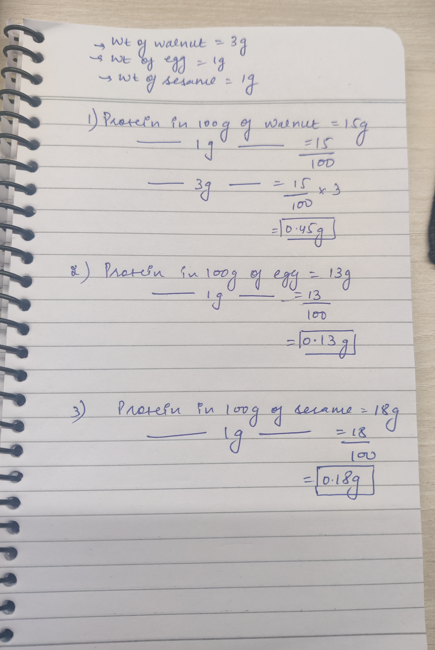 → Wt of walnut = 3g
→ Wt of egg = 1g
→ Wt of sesame = 1g
1) Protein in 100g of walnut = 15g
—— 1g —— = 15/100
—— 3g —— = 15/100 × 3
= 0.45g
2) Protein in 100g of egg = 13g
—— 1g —— = 13/100
= 0.13g
3) Protein in 100g of sesame = 18g
—— 1g —— = 18/100
= 0.18g